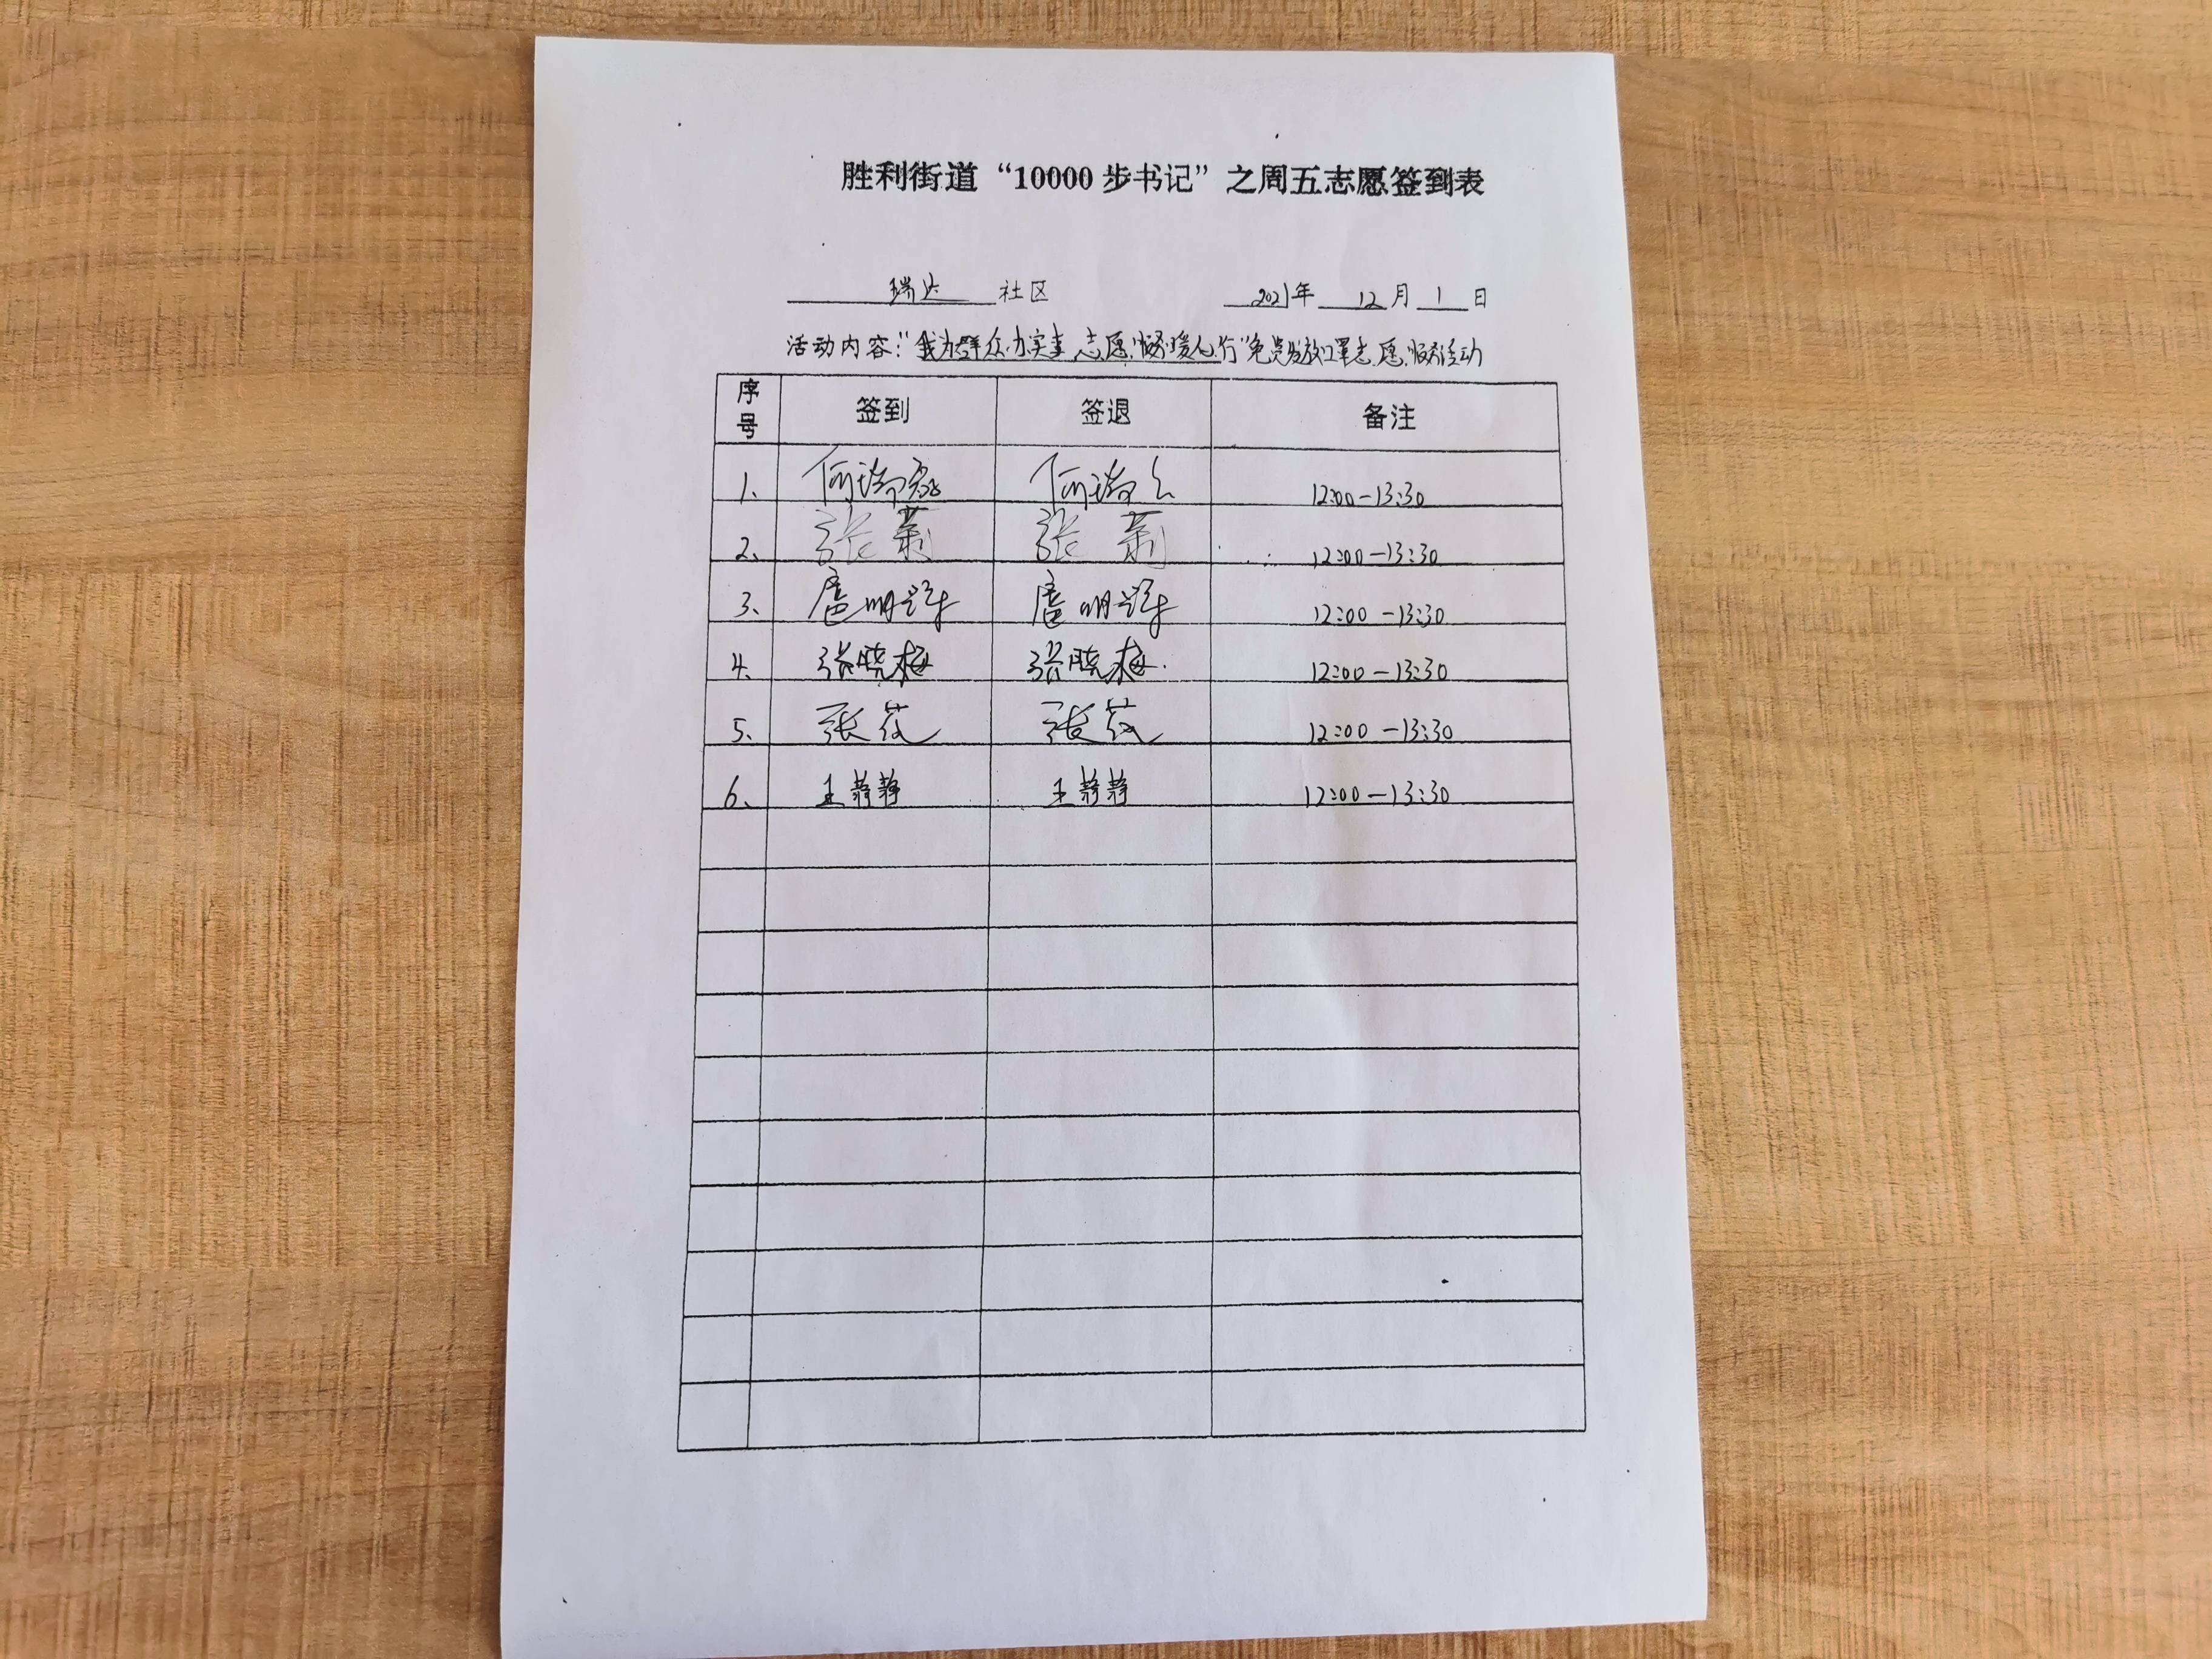 胜利街道“10000步书记”之周五志愿签到表
瑞达 社区 2021年 12月 1日
活动内容：“我为群众办实事 志愿服务暖人心行”免费发放口罩志愿服务活动
序号 签到 签退 备注
1、 何瑞 何瑞 12:00-13:30
2、 张莉 张莉 12:00-13:30
3、 唐明 唐明 12:00-13:30
4、 张晓梅 张晓梅 12:00-13:30
5、 张 张 12:00-13:30
6、 王静静 王静静 12:00-13:30